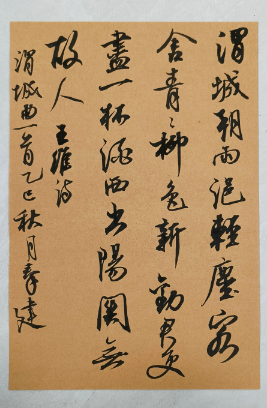 渭城朝雨浥輕塵客
舍青青柳色新勸君更
盡一杯酒西出陽關無
故人 王維詩
渭城曲一首乙巳秋月奉建